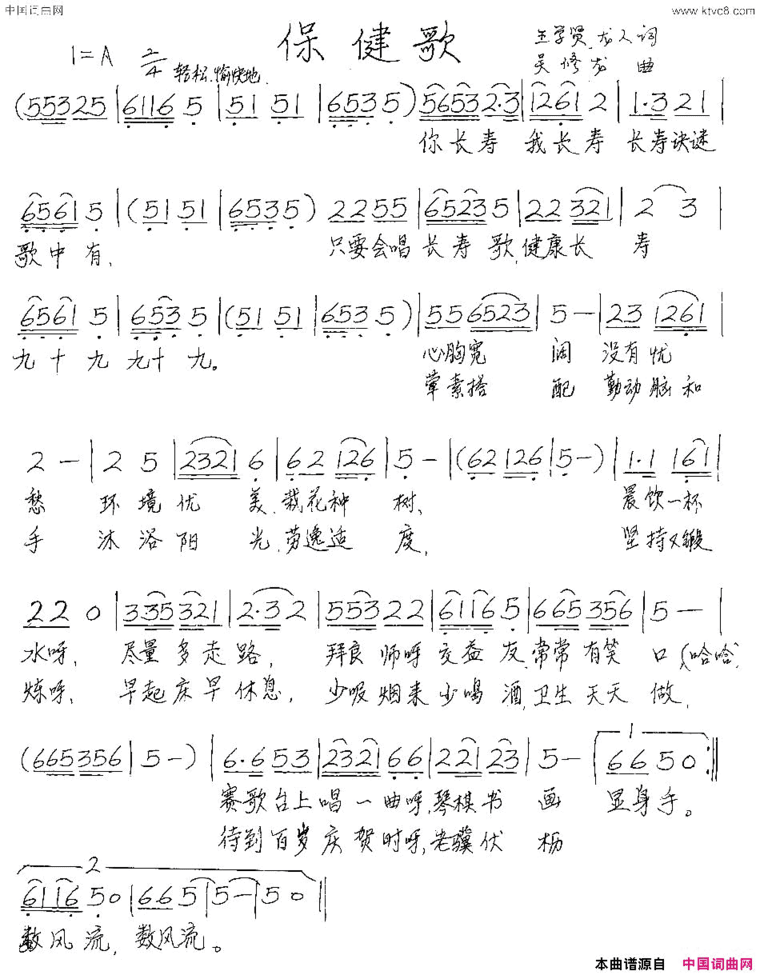 中国词曲网
www.ktvc8.com
保健歌
1=A 2/4 轻松.愉快地
王学贤,龙人词
吴修龙 曲
(55325|6116 5|51 51|6535)|56532·3|1261 2|1·3 21|
你长寿 我长寿 长寿诀谜
6561 5|(51 51|6535)|2255|65235|22 321|2 3|
歌中有, 只要会唱长寿歌,健康长 寿
6561 5|6535 5|(51 51|6535)|55 6523|5-|23 1261|
九十九 九十九。 心胸宽 阔 没有忧
荤素搭 配 勤动脑和
2-|2 5|2321 6|62 126|5-|(62 126|5-)|1·1 161|
愁 环境优 美,栽花种 树、 晨饮一杯
手 沐浴阳 光,劳逸适 度, 坚持又锻
22 0|335321|2·32|55322|61165|665356|5-|
水呀、 尽量多走路, 拜良师呀交益友,常常有笑 口(哈哈)
炼呀、 早起床早休息, 少吸烟来少喝酒,卫生天天 做,
(665356|5-)|6·653|232166|22123|5-|1 6650:||
赛歌台上唱一曲呀,琴棋书 画 显身手。
待到百岁庆贺时呀,老骥伏 枥
2
6116 50|665|5-|50||
数风流, 数风流。
本曲谱源自 中国词曲网